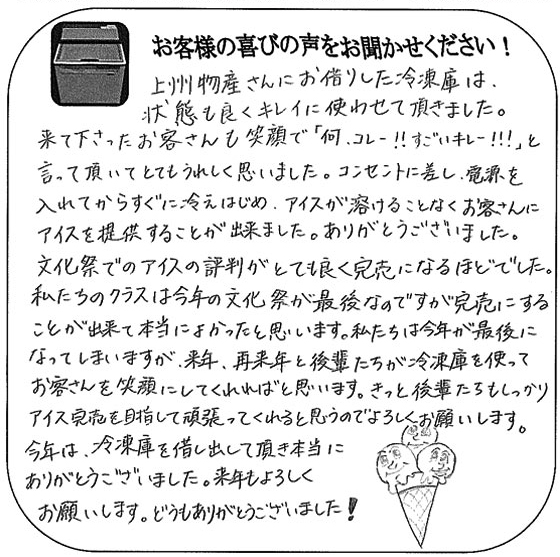 お客様の喜びの声をお聞かせください！
上州物産さんにお借りした冷凍庫は、
状態も良くキレイに使わせて頂きました。
来て下さったお客さんも笑顔で「何、コレー!!すごいキレー!!!」と
言って頂いてとてもうれしく思いました。コンセントに差し、電源を
入れてからすぐに冷えはじめ、アイスが溶けることなくお客さんに
アイスを提供することが出来ました。ありがとうございました。
文化祭でのアイスの評判がとても良く完売になるほどでした。
私たちのクラスは今年の文化祭が最後なのですが完売にする
ことが出来て本当によかったと思います。私たちは今年が最後に
なってしまいますが、来年、再来年と後輩たちが冷凍庫を使って
お客さんを笑顔にしてくれればと思います。きっと後輩たちもしっかり
アイス完売を目指して頑張ってくれると思うのでよろしくお願いします。
今年は、冷凍庫を借し出して頂き本当に
ありがとうございました。来年もよろしく
お願いします。どうもありがとうございました！